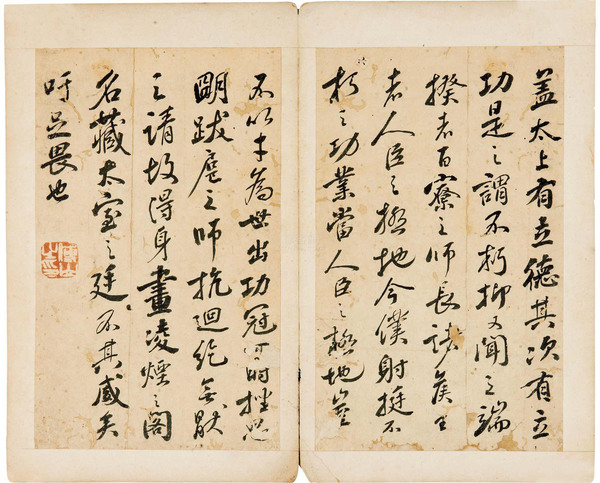 盖太上有立德其次有立
功是之謂不朽抑又聞之端
揆者百寮之師長諸侯王
者人臣之極地今僕射挺不
朽之功業當人臣之極地豈
不以才為世出功冠一時挫思
明跋扈之師抗迴紇無猒
之請故得身畫凌煙之閣
名藏太室之廷不其盛矣
吁足畏也